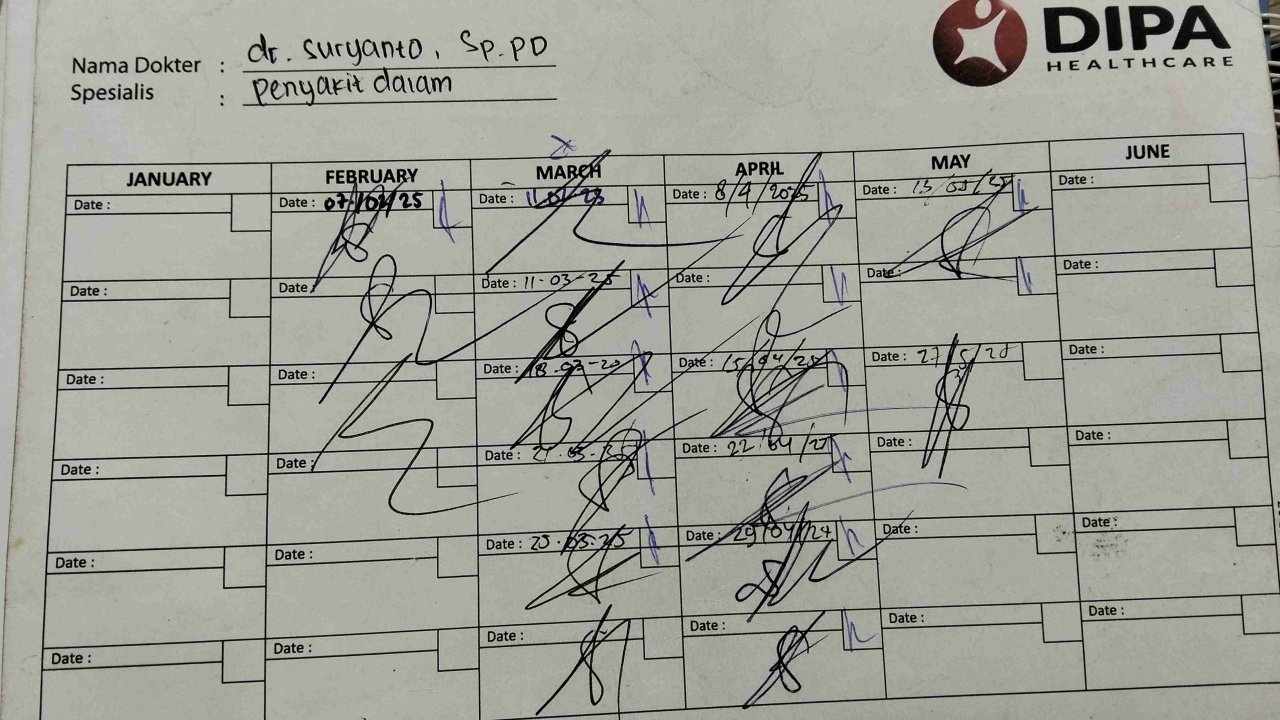 DIPA
HEALTHCARE
Nama Dokter : dr. Suryanto, Sp.PD
Spesialis : Penyakit dalam
JANUARY FEBRUARY MARCH APRIL MAY JUNE
Date : Date : 07/02/25 Date : Date : 8/4/2025 Date : Date :
Date : Date : Date : 11-03-25 Date : Date : Date :
Date : Date : Date : Date : 15/04/25 Date : 27/5/25 Date :
Date : Date : Date : Date : 22/04/25 Date : Date :
Date : Date : Date : 25.03.25 Date : 29/04/24 Date : Date :
Date : Date : Date : Date : Date : Date :